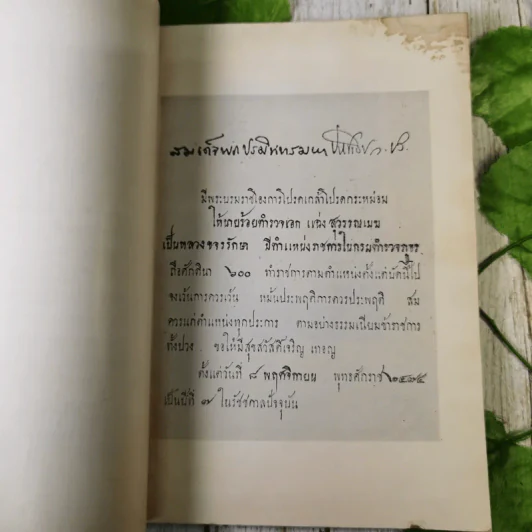 สมเด็จพระปรมินทรมหา
มีพระบรมราชโองการโปรดเกล้าโปรดกระหม่อม
ให้นายร้อยตำรวจเอก แฉ่ง สุวรรณเมฆ
เป็นหลวงขจรรักษา มีตำแหน่งราชการในกรมตำรวจภูธร
ถือศักดินา ๖๐๐ ทำราชการตามตำแหน่งตั้งแต่บัดนี้ไป
จงเว้นการควรเว้น หมั่นประพฤติการควรประพฤติ สม
ควรแก่ตำแหน่งทุกประการ ตามอย่างธรรมเนียมข้าราชการ
ทั้งปวง ขอให้มีสุขสวัสดิ์เจริญ เทอญ
ตั้งแต่วันที่ ๘ พฤศจิกายน พุทธศักราช ๒๔๗๕
เป็นปีที่ ๗ ในรัชชกาลปัจจุบัน